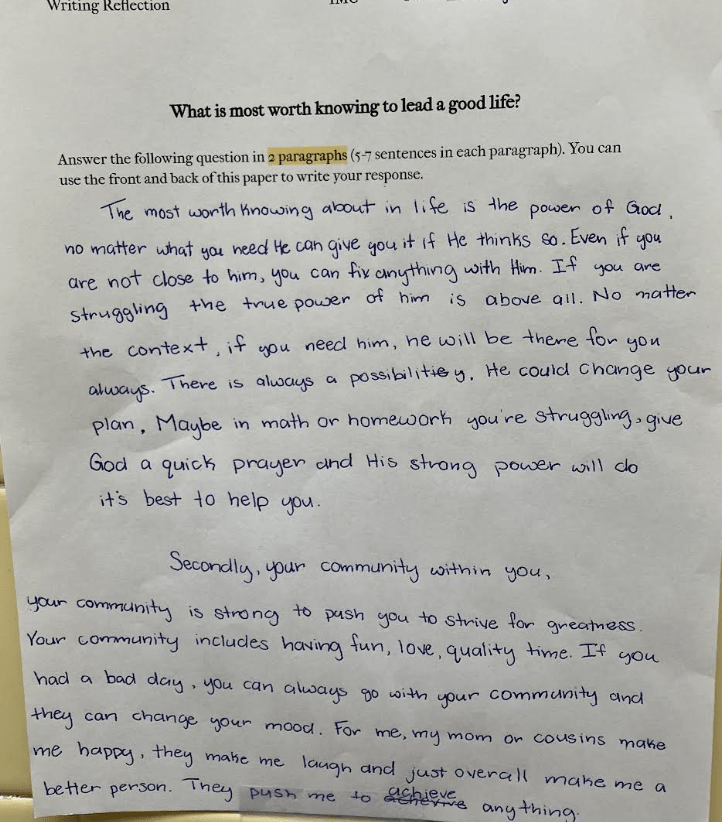 Writing Reflection
What is most worth knowing to lead a good life?
Answer the following question in 2 paragraphs (5-7 sentences in each paragraph). You can
use the front and back of this paper to write your response.
The most worth knowing about in life is the power of God,
no matter what you need He can give you it if He thinks so. Even if you
are not close to him, you can fix anything with Him. If you are
struggling the true power of him is above all. No matter
the context, if you need him, he will be there for you
always. There is always a possibility. He could change your
plan. Maybe in math or homework you're struggling, give
God a quick prayer and His strong power will do
it's best to help you.
Secondly, your community within you,
your community is strong to push you to strive for greatness.
Your community includes having fun, love, quality time. If you
had a bad day, you can always go with your community and
they can change your mood. For me, my mom or cousins make
me happy, they make me laugh and just overall make me a
better person. They push me to achieve anything.